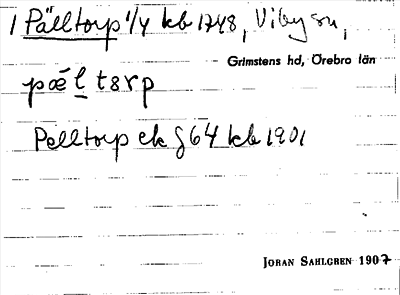 1 Pälltorp 1/4 kb 1748, Viby sn,
Grimstens hd, Örebro län
pæ´l tɞrp
Pelltorp ek § 64 kb 1901
JÖRAN SAHLGREN 1907